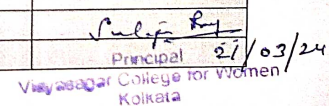 21/03/24
Principal
Vidyasagar College for Women
Kolkata